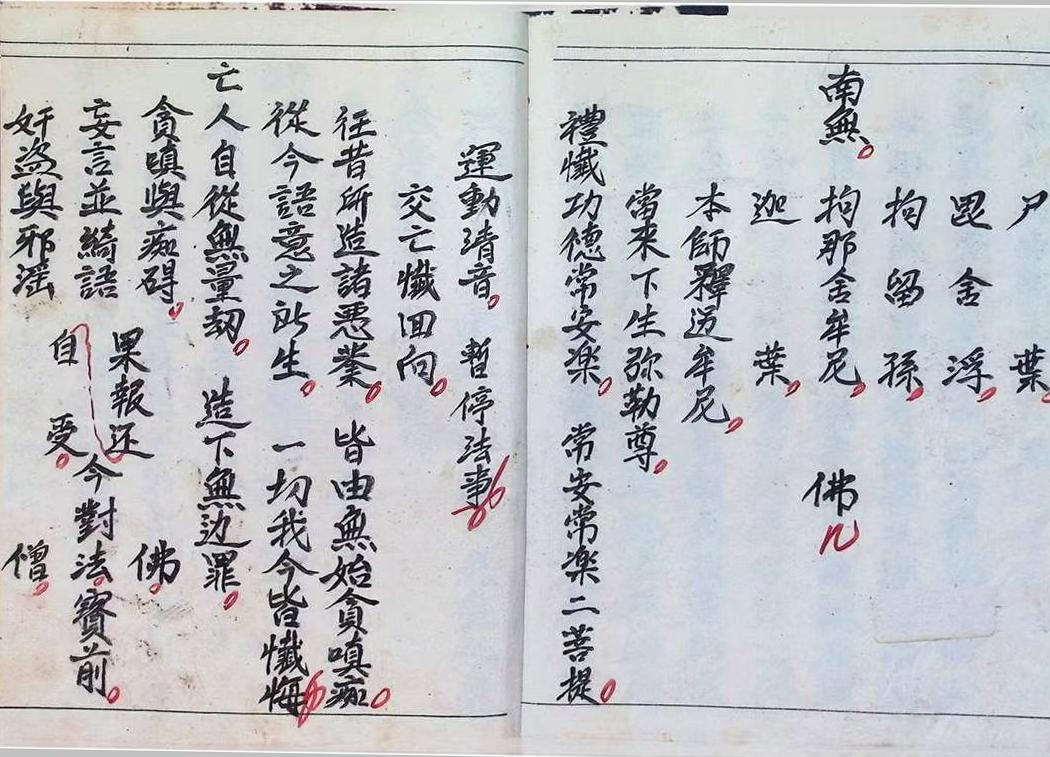 尸葉
毘舍浮
拘留孫
南無 拘那舍牟尼 佛
迦葉
本師釋迦牟尼
當來下生弥勒尊
禮懺功德常安楽 常安常楽二菩提
運動清音 暫停法事
交亡懺回向
往昔所造諸悪業 皆由無始貪嗔痴
從今語意之所生 一切我今皆懺悔
亡人自從無量劫 造下無边罪
貪嗔與痴碍 果報还 佛
妄言並綺語 今對法寶前
奸盗與邪滛 自受 僧